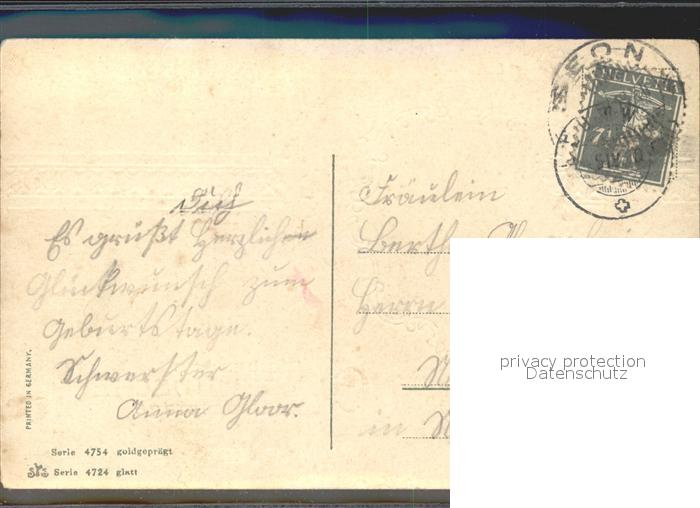 Dich
Es grüßt Herzlichen
Glückwunsch zum
Geburtstage.
Schwerster
Anna Gloor.
PRINTED IN GERMANY.
Serie 4754 goldgeprägt
Serie 4724 glatt
SEON
HELVETIA
7½
Fräulein
Berth
Herrn
in
privacy protection
Datenschutz